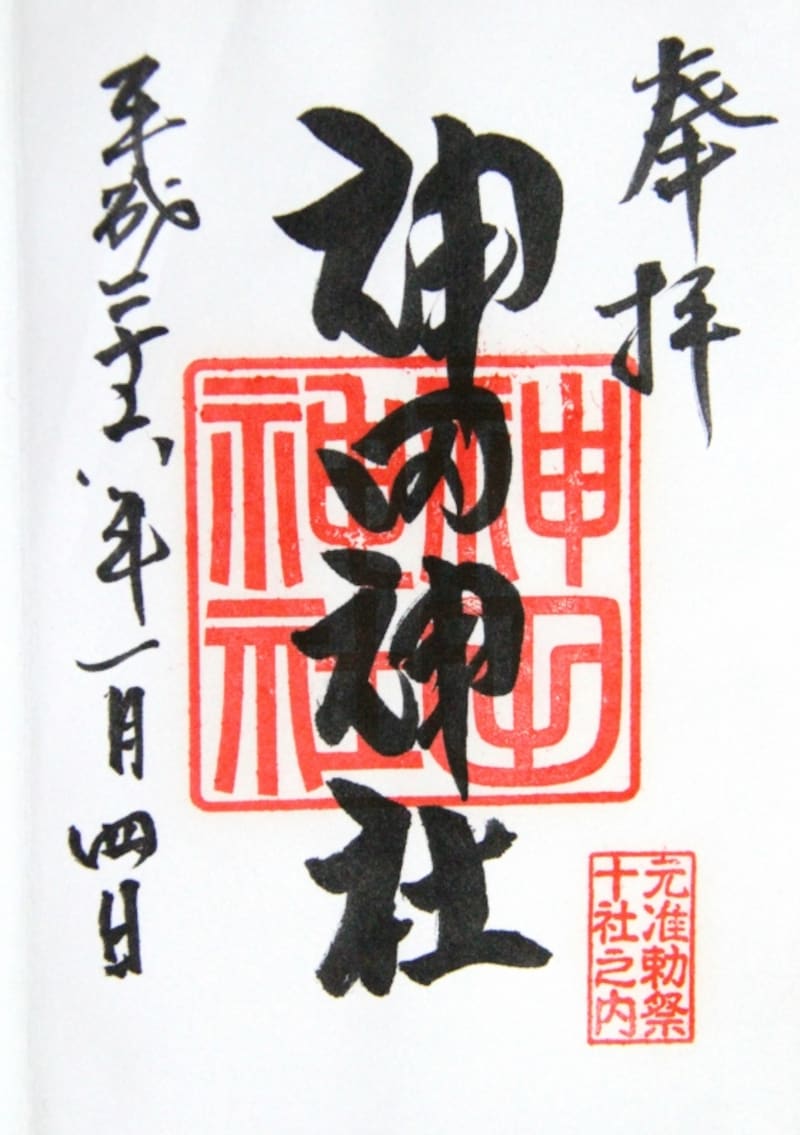 奉拝
神田神社
神田
神社
平成二十六年一月四日
元准勅祭
十社之内